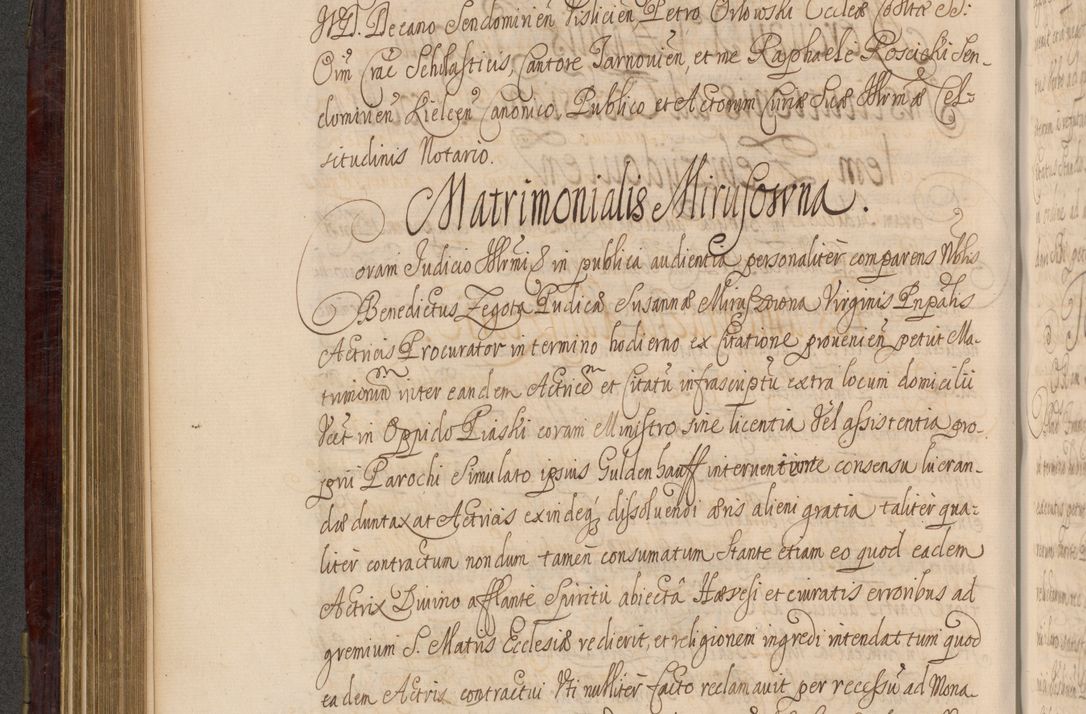 JJ. DD. Decano Sendominien Visliciēn Petro Orlowski Eccłæ Coll̄tæ SS:
Om̄ Crac Scholasticus, Cantore Tarnoviēn, et me Raphaele Rosciski Sen-
domiriēn Kielcen Canonico Publico et Actorum Curiæ Suæ Illrmæ Cel-
situdinis Notario.
Matrimonialis Mirusowna.
Coram Judicio Illrmi & in publica audientia personalitèr comparens Nblis
Benedictus Zegota Pudicæ Susannæ Mirussowna Virginis Prnpalis
Actricis Procurator in termino hodierno ex Citatione provenien petiit Ma-
trimoniū inter eandem Actricem et Citatū infrascriptū extra locum domicilii
Vēt in Oppido Piaski coram Ministro sine licentia Vel assistentia pro-
prii Parochi Simulato ipsius Guldenhauff interventionte consensu lucran-
dæ duntaxat Actricis exindeq, dissoluendi æris alieni gratia taliter qua-
liter contractum nondum tamen consumatum stante etiam eo quod eadem
Actrix Divino afflante Spiritu abiectâ Hæresi et eiuratis erroribus ad
gremium S. Matris Ecclesiæ redierit, et religionem ingredi intendat tum quod
eadem Actrix contractui Vti nullitèr facto reclamauit per recessū ad Mona-